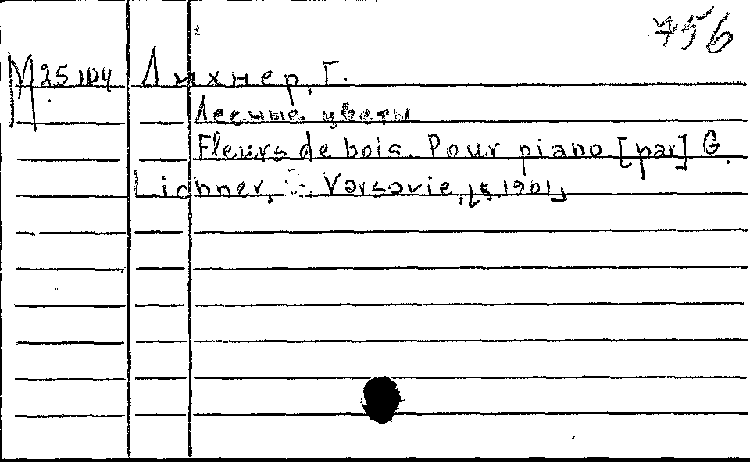 756
M 25104 Лихнер, Г.
Лесные цветы
Fleurs de bois. Pour piano [par] G.
Lichner, Varsovie, [s. 1901]